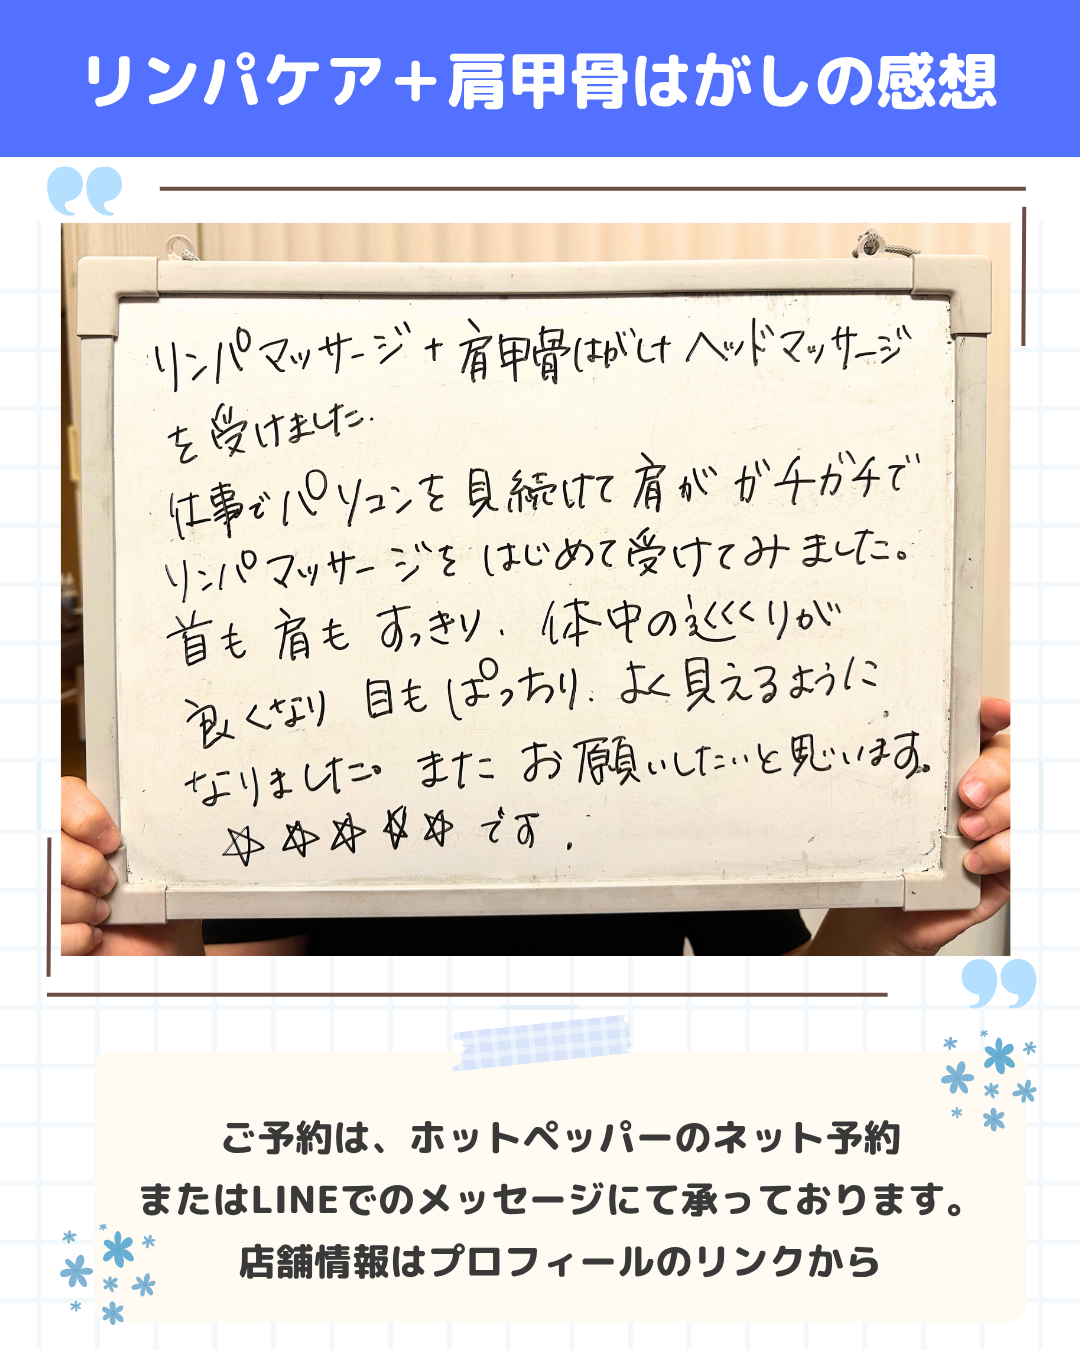 リンパケア＋肩甲骨はがしの感想
リンパマッサージ+肩甲骨はがし+ヘッドマッサージ
を受けました.
仕事でパソコンを見続けて肩がガチガチで
リンパマッサージをはじめて受けてみました。
首も肩もすっきり.体中の巡りが
良くなり目もぱっちり.よく見えるように
なりました。またお願いしたいと思います。
☆☆☆☆☆です.
ご予約は、ホットペッパーのネット予約
またはLINEでのメッセージにて承っております。
店舗情報はプロフィールのリンクから